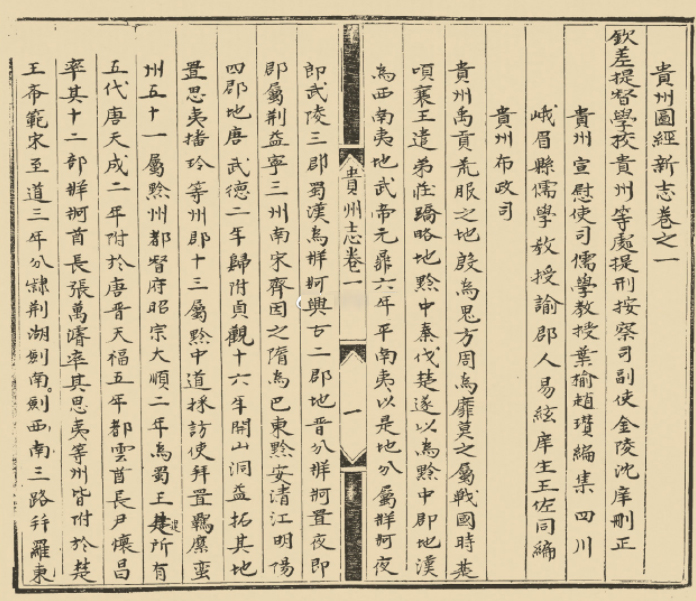 貴州圖經新志卷之一
欽差提督學挍貴州等處提刑按察司副使金陵沈庠刪正
貴州宣慰使司儒學教授葉榆趙瓚編集 四川
峨眉縣儒學教授諭郡人易絃庠生王佐同編
貴州布政司
貴州禹貢荒服之地殷為鬼方周為靡莫之屬戰國時楚
頃襄王遣弟莊蹻略地黔中秦伐楚遂以為黔中郡地漢
為西南夷地武帝元鼎六年平南夷以是地分屬牂牁夜
貴州志卷一
一
郎武陵三郡蜀漢為牂牁興古二郡地晉分牂牁置夜郎
郡屬荆益寧三州南宋齊因之隋為巴東黔安清江明陽
四郡地唐武德二年歸附貞觀十六年開山洞益拓其地
置思夷播玲等州郡十三屬黔中道採訪使拜置羈縻蠻
州五十一屬黔州都督府昭宗大順二年為蜀王建所有
五代唐天成二年附於唐晉天福五年都雲酋長尹懷昌
率其十二部牂牁酋長張萬濬率其思夷等州皆附於楚
王希範宋至道三年分隸荆湖劍南劍西南三路并羅東